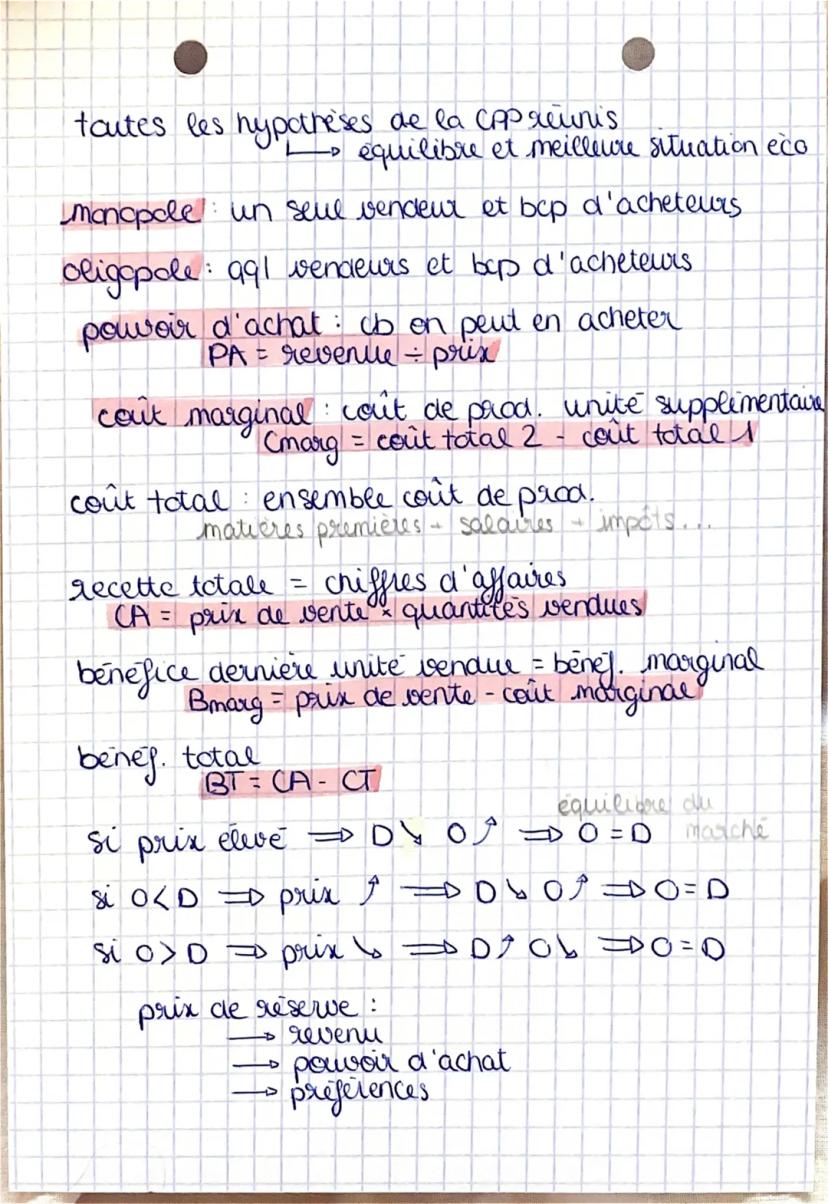 toutes les hypothèses de la CPP réunis
→ équilibre et meilleure situation éco
monopole : un seul vendeur et bcp d'acheteurs
oligopole : qql vendeurs et bcp d'acheteurs
pouvoir d'achat : cb on peut en acheter
PA = revenue ÷ prix
coût marginal : coût de prod. unité supplémentaire
Cmarg = coût total 2 - coût total 1
coût total : ensemble coût de prod.
matières premières + salaires + impôts...
recette totale = chiffres d'affaires
CA = prix de vente × quantités vendues
bénéfice dernière unité vendue = bénéf. marginal
Bmarg = prix de vente - coût marginal
bénéf. total
BT = CA - CT
équilibre du
si prix élevé ⇒ D↘ O↗ ⇒ O = D marché
si O<D ⇒ prix ↗ ⇒ D↘ O↗ ⇒ O = D
si O>D ⇒ prix ↘ ⇒ D↗ O↘ ⇒ O = D
prix de réserve :
→ revenu
→ pouvoir d'achat
→ préférences